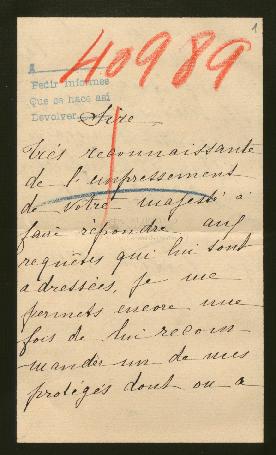 40989
1
A
Pedir informes
Que se hace así
Devolver
Sire
Très reconnaissante
de l'empressement
de votre majesté à
faire répondre aux
requêtes qui lui sont
adressées, je me
permets encore une
fois de lui recom
mander un de mes
protégés dont on a